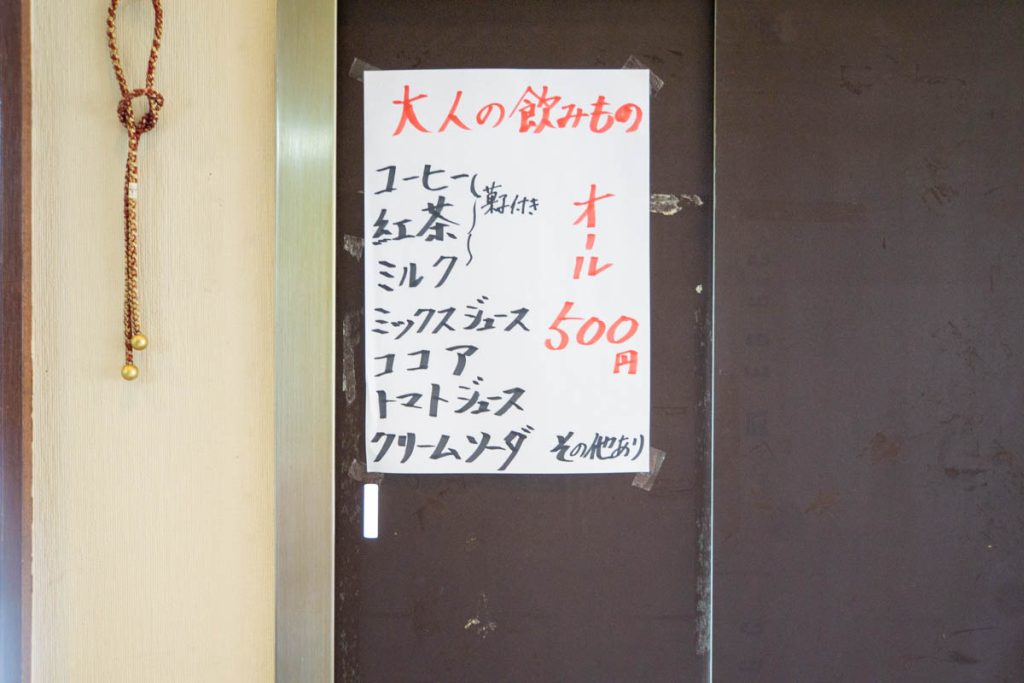 大人の飲みもの
コーヒー
紅茶
ミルク
菓子付き
ミックスジュース
ココア
トマトジュース
クリームソーダ
オール
500
円
その他あり